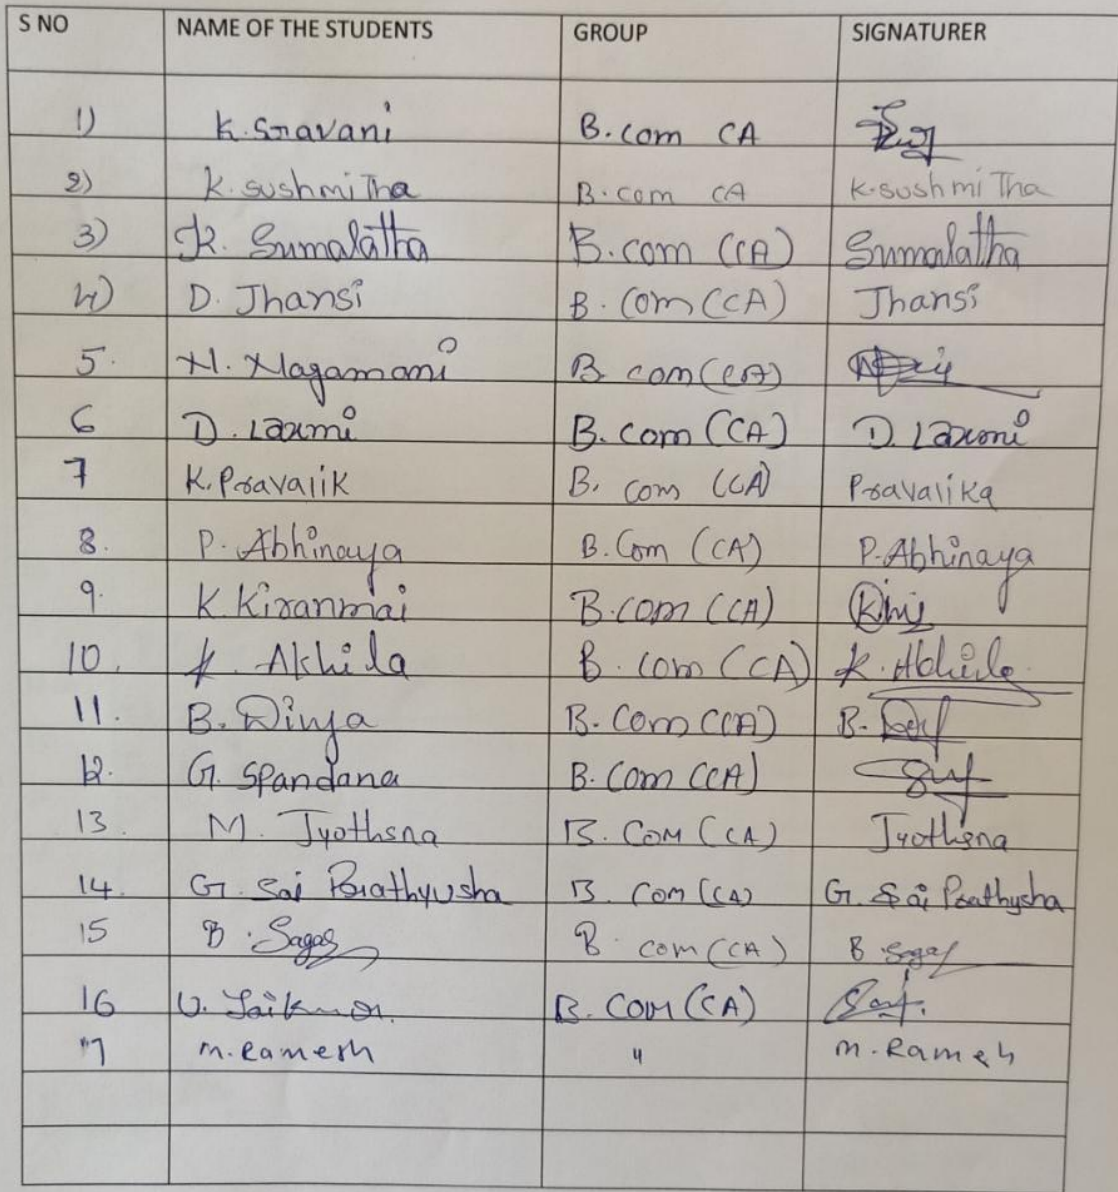 S NO NAME OF THE STUDENTS GROUP SIGNATURER
1) K. Sravani B. com CA
2) K. sushmiTha B. com CA K. sushmiTha
3) K. Sumalatha B. com (CA) Sumalatha
4) D. Jhansi B. Com (CA) Jhansi
5. N. Nagamani B. com (CA)
6 D. Laxmi B. com (CA) D. Laxmi
7 K. Pravalik B. com (CA) Pravalika
8. P. Abhinaya B. Com (CA) P. Abhinaya
9. K. Kiranmai B. com (CA)
10. K. Akhila B. com (CA) K. Akhila
11. B. Divya B. Com (CA) B.
12. G. Spandana B. Com (CA)
13. M. Jyothsna B. Com (CA) Jyothsna
14. G. Sai Prathyusha B. Com (CA) G. Sai Prathysha
15 B. Sagar B. com (CA) B Sagar
16 U. Saikumar. B. COM (CA)
17 M. Ramesh " M. Ramesh